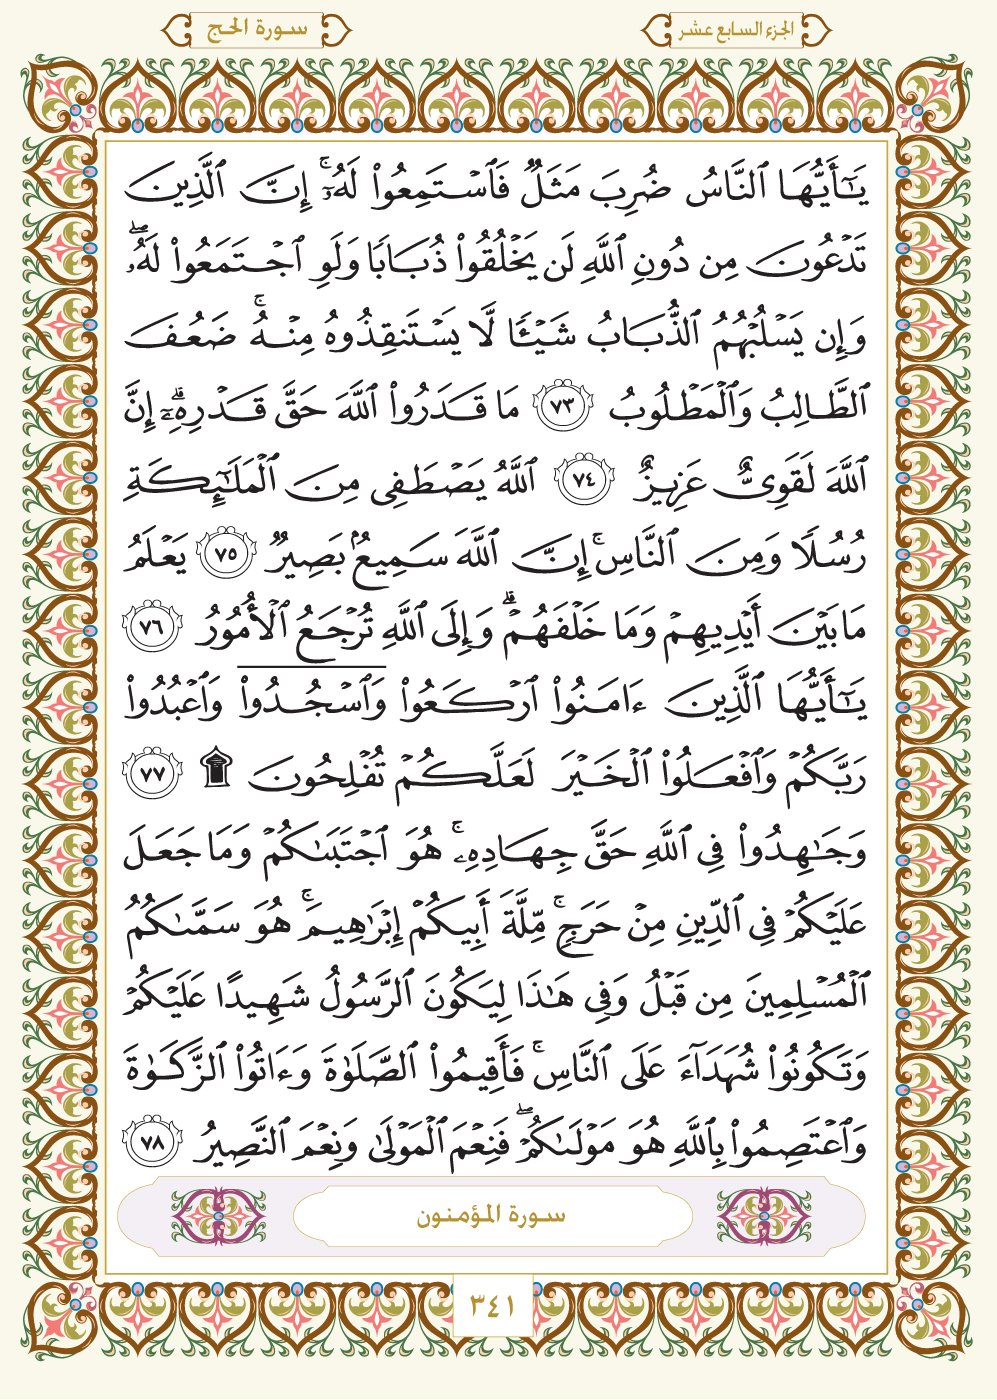 الجزء السابع عشر
سورة الحج
يَـٰٓأَيُّهَا ٱلنَّاسُ ضُرِبَ مَثَلٌ فَٱسْتَمِعُوا۟ لَهُۥٓ ۚ إِنَّ ٱلَّذِينَ
تَدْعُونَ مِن دُونِ ٱللَّهِ لَن يَخْلُقُوا۟ ذُبَابًا وَلَوِ ٱجْتَمَعُوا۟ لَهُۥ ۖ
وَإِن يَسْلُبْهُمُ ٱلذُّبَابُ شَيْـًٔا لَّا يَسْتَنقِذُوهُ مِنْهُ ۚ ضَعُفَ
ٱلطَّالِبُ وَٱلْمَطْلُوبُ ٧٣ مَا قَدَرُوا۟ ٱللَّهَ حَقَّ قَدْرِهِۦٓ ۗ إِنَّ
ٱللَّهَ لَقَوِىٌّ عَزِيزٌ ٧٤ ٱللَّهُ يَصْطَفِى مِنَ ٱلْمَلَـٰٓئِكَةِ
رُسُلًا وَمِنَ ٱلنَّاسِ ۚ إِنَّ ٱللَّهَ سَمِيعٌۢ بَصِيرٌ ٧٥ يَعْلَمُ
مَا بَيْنَ أَيْدِيهِمْ وَمَا خَلْفَهُمْ ۗ وَإِلَى ٱللَّهِ تُرْجَعُ ٱلْأُمُورُ ٧٦
يَـٰٓأَيُّهَا ٱلَّذِينَ ءَامَنُوا۟ ٱرْكَعُوا۟ وَٱسْجُدُوا۟ وَٱعْبُدُوا۟
رَبَّكُمْ وَٱفْعَلُوا۟ ٱلْخَيْرَ لَعَلَّكُمْ تُفْلِحُونَ ۩ ٧٧
وَجَـٰهِدُوا۟ فِى ٱللَّهِ حَقَّ جِهَادِهِۦ ۚ هُوَ ٱجْتَبَىٰكُمْ وَمَا جَعَلَ
عَلَيْكُمْ فِى ٱلدِّينِ مِنْ حَرَجٍ ۚ مِّلَّةَ أَبِيكُمْ إِبْرَٰهِيمَ ۚ هُوَ سَمَّىٰكُمُ
ٱلْمُسْلِمِينَ مِن قَبْلُ وَفِى هَـٰذَا لِيَكُونَ ٱلرَّسُولُ شَهِيدًا عَلَيْكُمْ
وَتَكُونُوا۟ شُهَدَآءَ عَلَى ٱلنَّاسِ ۚ فَأَقِيمُوا۟ ٱلصَّلَوٰةَ وَءَاتُوا۟ ٱلزَّكَوٰةَ
وَٱعْتَصِمُوا۟ بِٱللَّهِ هُوَ مَوْلَىٰكُمْ ۖ فَنِعْمَ ٱلْمَوْلَىٰ وَنِعْمَ ٱلنَّصِيرُ ٧٨
سورة المؤمنون
٣٤١